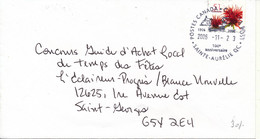 POSTES CANADA POST
2009-11-23
SAINTE-AURÉLIE QC
Concours Guide d'Achat Local
de temps des Fêtes
L'Éclaireur-Progrès/Beauce Nouvelle
12625, 1re Avenue Est
Saint-Georges
G5Y 2E4